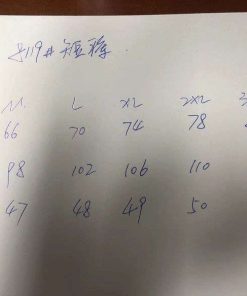 8119# 短裤
M L XL 2XL 3
66 70 74 78
98 102 106 110
47 48 49 50